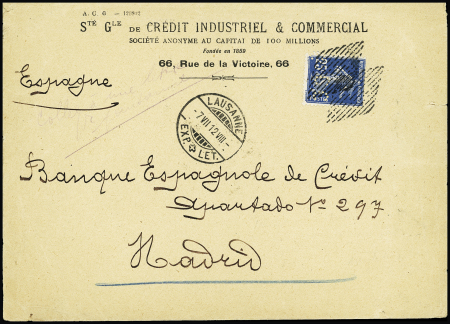 Sᵗᵉ Gˡᵉ DE CRÉDIT INDUSTRIEL & COMMERCIAL
SOCIÉTÉ ANONYME AU CAPITAL DE 100 MILLIONS
Fondée en 1859
66, Rue de la Victoire, 66
Espagne
25
LAUSANNE
-7 VII 12 VIII-
EXP. LET.
Banque Espagnole de Crédit
Apartado Nº 297
Madrid